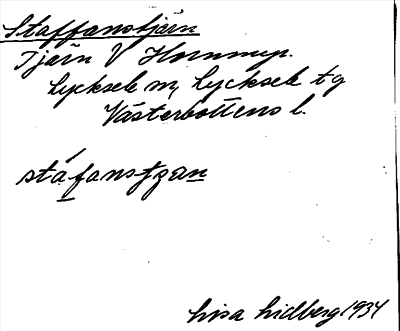 Staffanstjärn
Tjärn V Hornmyr.
Lycksele m, Lycksele tg
Västerbottens l.
stáfanstɟæn
Lisa Lidberg 1934